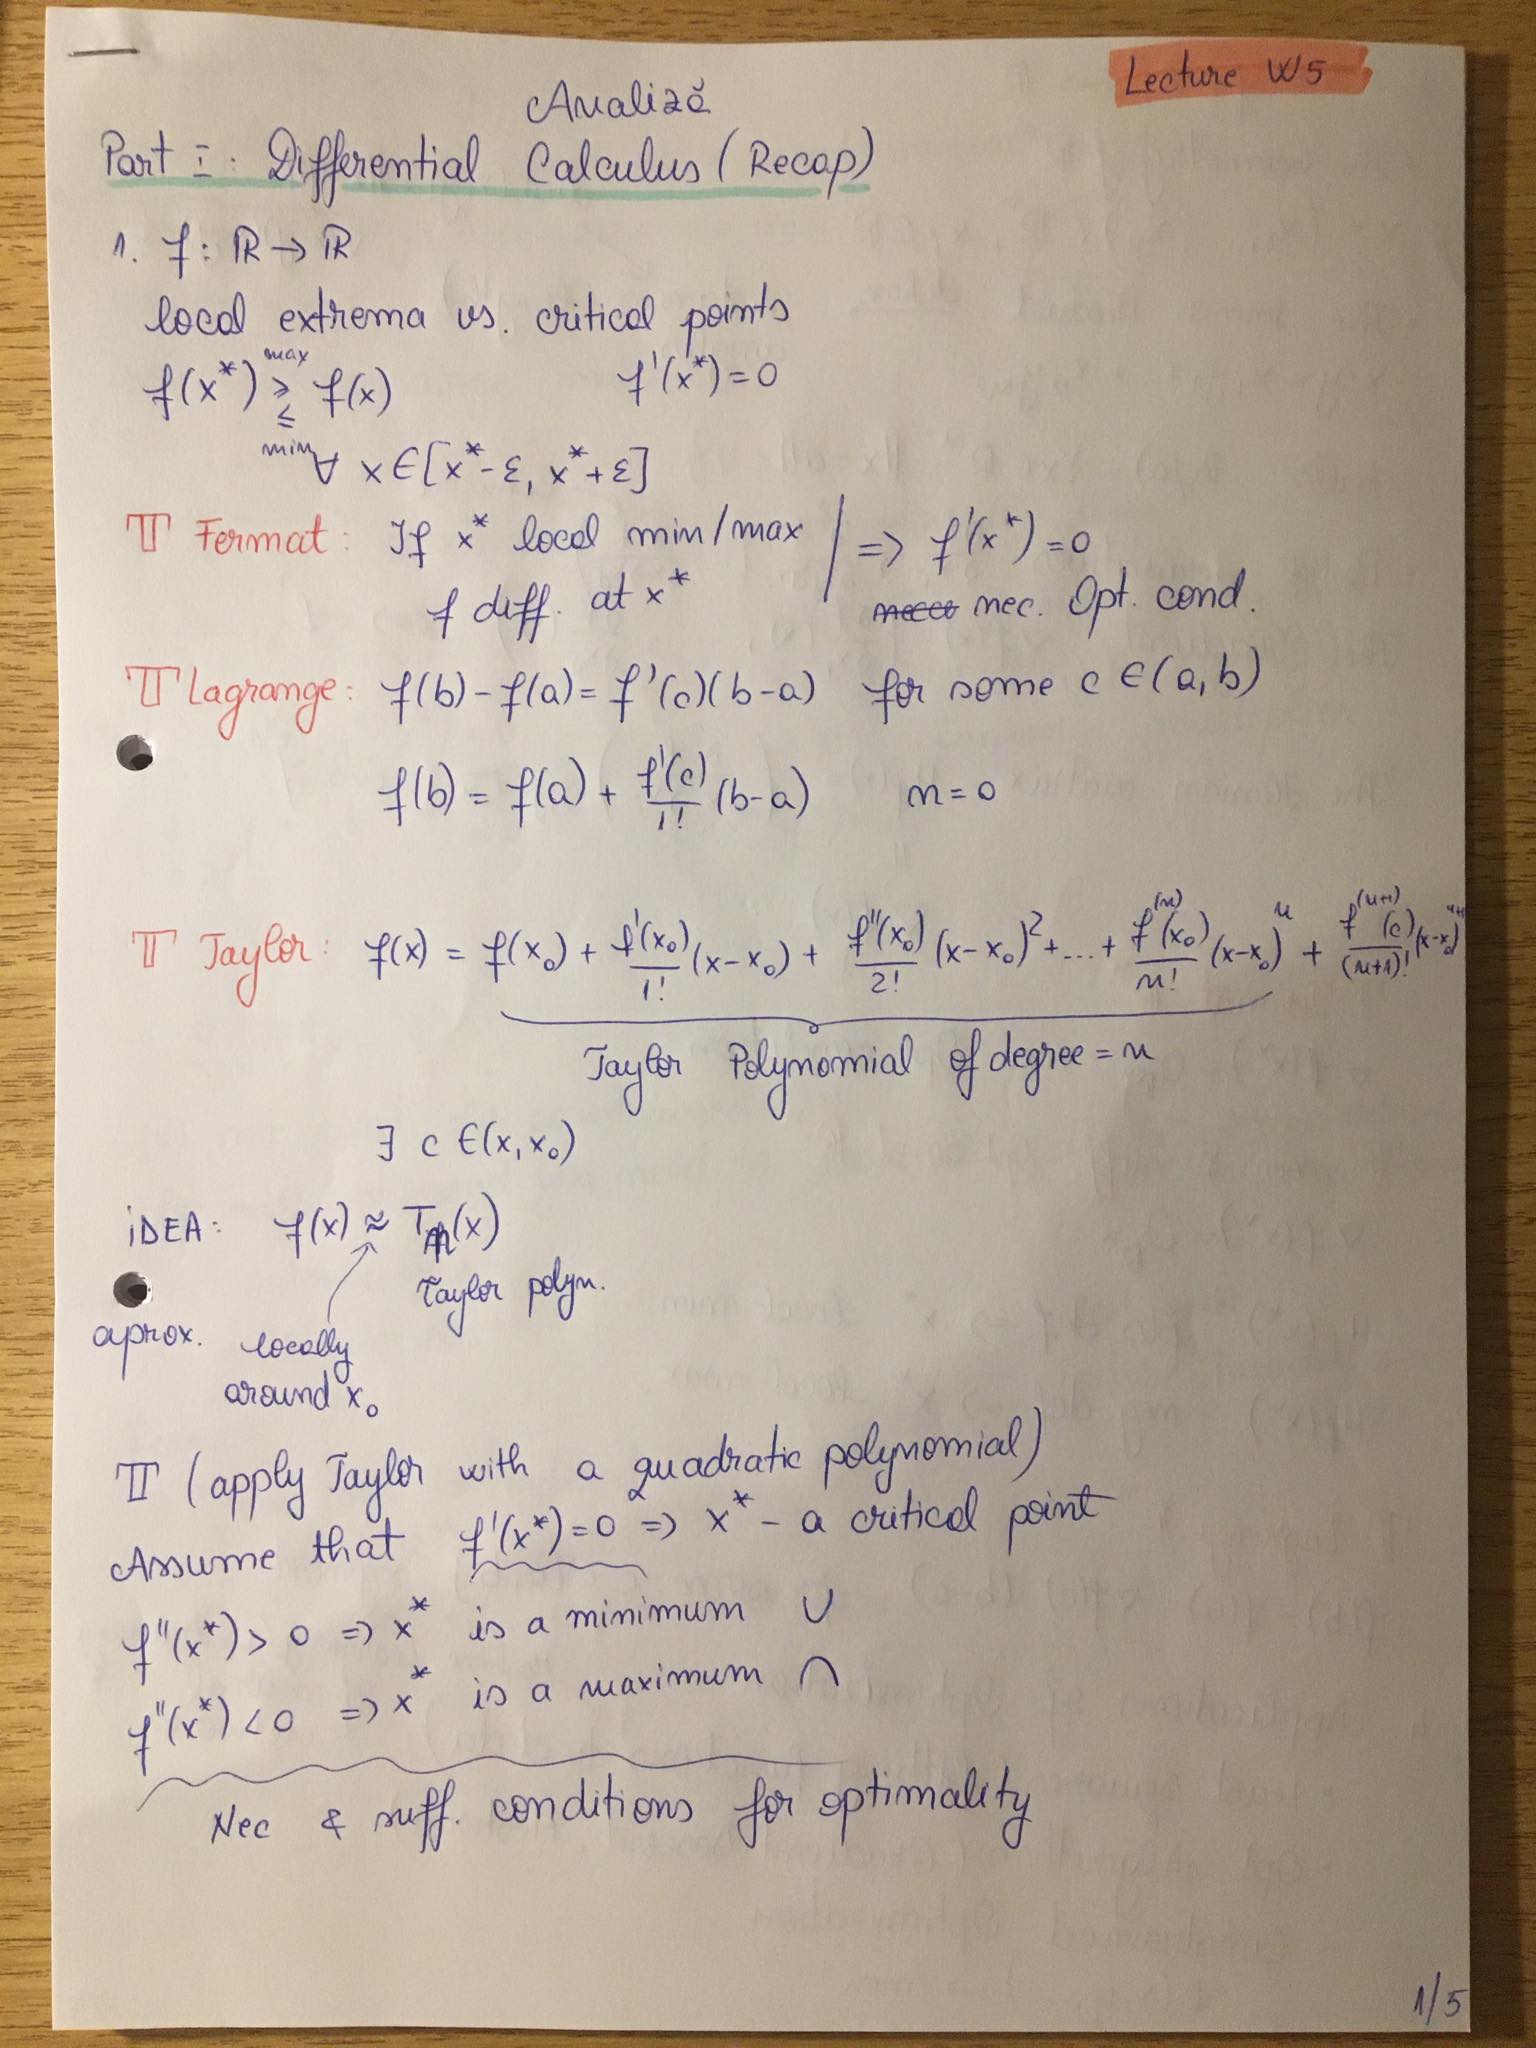 Lecture W5
Analiză
Part I: Differential Calculus (Recap)
1. f: ℝ → ℝ
local extrema vs. critical points
max
f(x*) ≥ ≤ f(x) f'(x*) = 0
min ∀ x ∈ [x* - ε, x* + ε]
𝕋 Fermat: If x* local min/max | => f'(x*) = 0
f diff. at x* nec. Opt. cond.
𝕋 Lagrange: f(b) - f(a) = f'(c)(b-a) for some c ∈ (a, b)
f(b) = f(a) + f'(c)/1! (b-a) n = 0
𝕋 Taylor: f(x) = f(x₀) + f'(x₀)/1! (x-x₀) + f''(x₀)/2! (x-x₀)² + ... + f⁽ⁿ⁾(x₀)/n! (x-x₀)ⁿ + f⁽ⁿ⁺¹⁾(c)/(n+1)! (x-x₀)ⁿ⁺¹
Taylor Polynomial of degree = n
∃ c ∈ (x, x₀)
iDEA: f(x) ≈ Tₙ(x)
Taylor polyn.
aprox. locally
around x₀
𝕋 (apply Taylor with a quadratic polynomial)
Assume that f'(x*) = 0 => x* - a critical point
f''(x*) > 0 => x* is a minimum ∪
f''(x*) < 0 => x* is a maximum ∩
Nec & suff. conditions for optimality
1/5